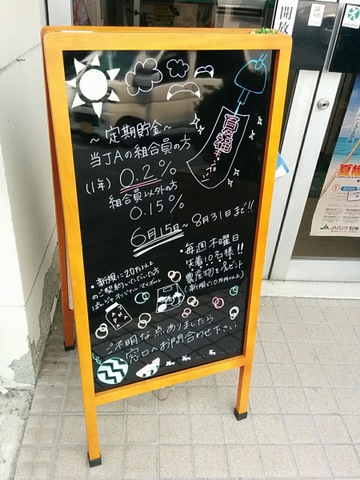 夏福
～定期貯金～
当JAの組合員の方
(1年) 0.2%
組合員以外の方
0.15%
6月15日～8月31日まで!!
・新規に20万以上
のご契約いただいた方
・毎週木曜日
先着10名様!!
農産物をプレゼント
(新規で10万円以上)
ご不明な点ありましたら
窓口へお問合わせ下さい
開放
JAバンク